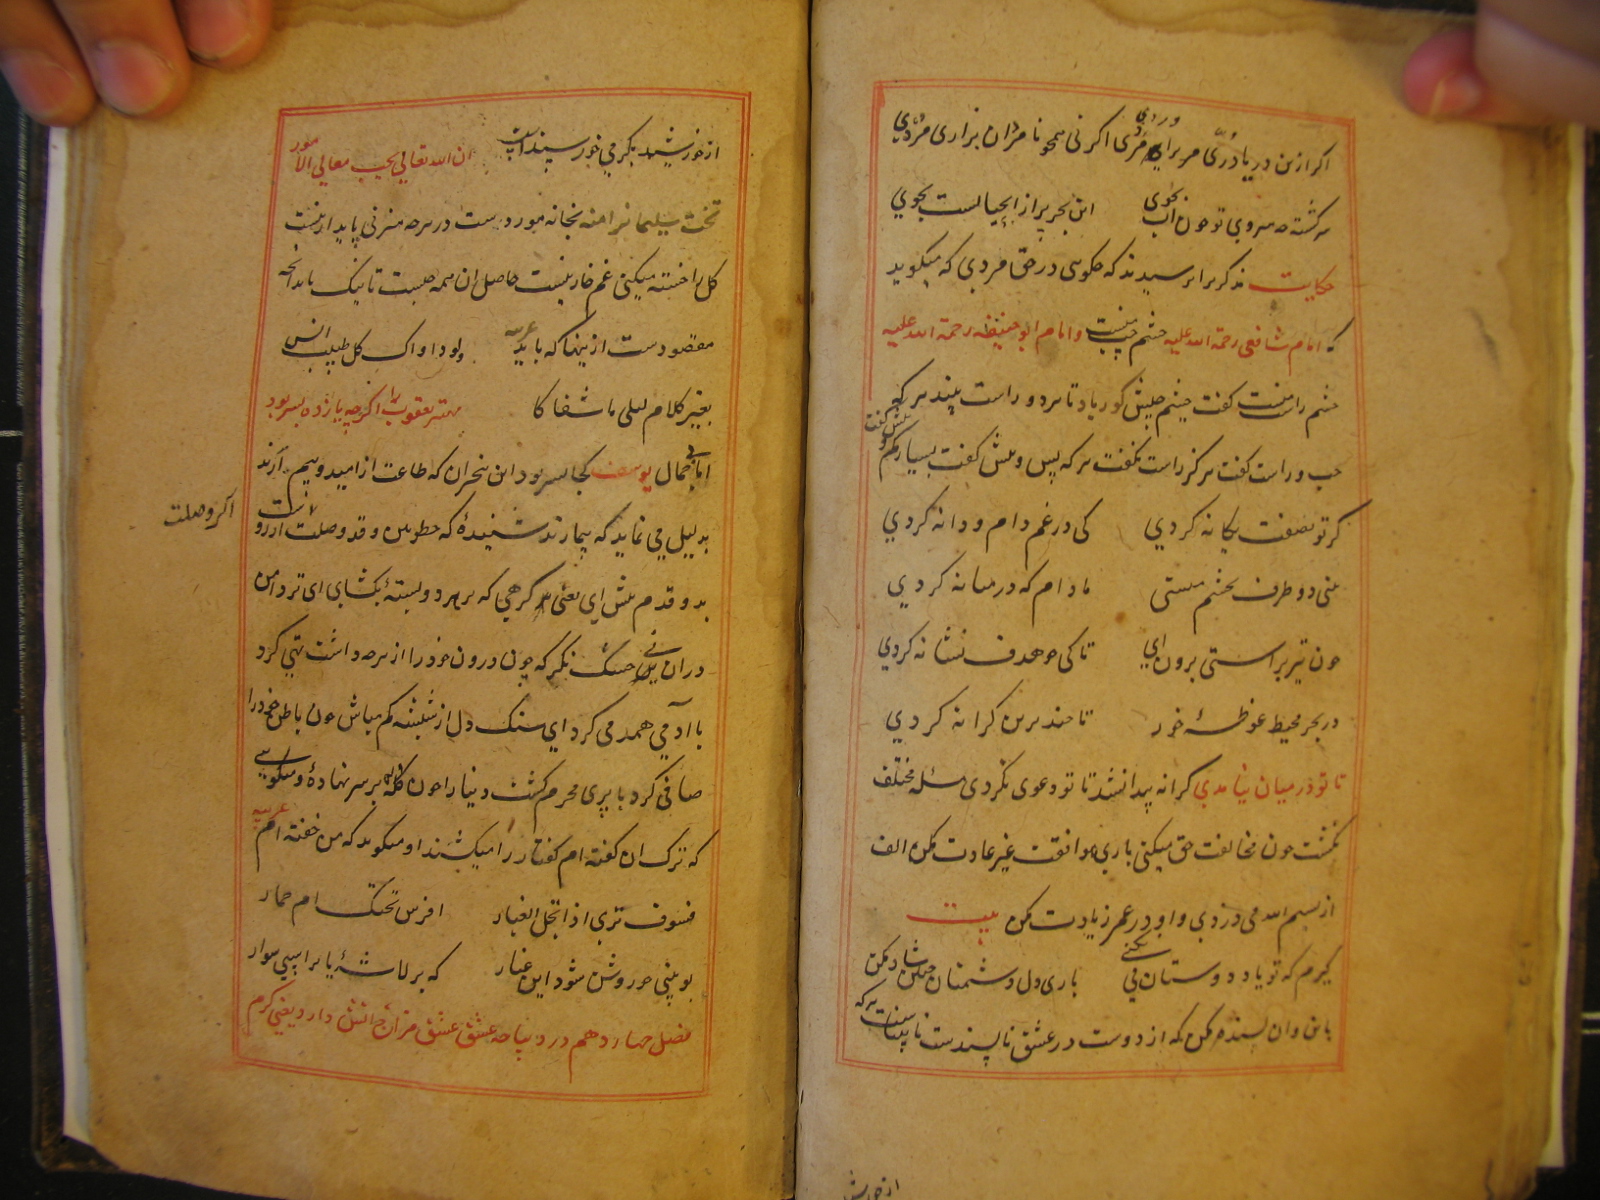 اکر ازین دریا دری مر برای مردی اکر نی همچو نامردان بزاری مردی
سرکشته چه میروی تو چون آب بجوی این بحر پر از آبحیاتست بجوی
حکایت مذکر را پرسیدند که چکویی در حق مردی که میکوید
که امام شافعی رحمة الله علیه چشم چپ منست و امام ابو حنیفه رحمة الله علیه
چشم راست منست کفت چشم چپش کور باد تا مرد و راست بیند هر که
چپ و راست کفت هرکز راست نکفت هر که پس و پیش کفت بسیار کم
کر تو بصفت یکانه کردی کی در غم دام و دانه کردی
بینی دو طرف بچشم مستی مادام که در میانه کردی
چون تیر براستی برون آی تا کی چو هدف نشانه کردی
در بحر محیط غوطهٔ خور تا چند برین کرانه کردی
تا تو در میان نیامدی کرانه پیدا نشد تا تو دعوی نکردی مسئله مختلف
نکشت چون مخالفت حق میکنی باری موافقت غیر عادت مکن الف
از بسم الله می دزدی و او در عمر زیادت مکن بیت
کیرم که تو یاد دوستان می نکنی باری دل دشمنان چنین شاد مکن
باین و آن بسنده مکن که از دوست در عشق ناپسندست
از خورشید
از خورشید بکرمی خورسندست ان الله تعالی یحب معالی الامور
تخت سلیمانرا منه بخانه مور دست در هر چه میزنی پایدار نیست
کل را خسته میکنی غم خار نیست حاصل ان همه چیست تا نیک بدانچه
مقصودست ازینها که باید عربیه ولو داواک کل طبیب انس
بغیر کلام لیلی ما شفاکا مهتر یعقوب را اکرچه یازده پسر بود
اما بی جمال یوسف کجا بسر بود این بیخبران که طاعت از امید و بیم آرند
بدلیل می نماید که بیمارند شنیدهٔ که خطوتین و قد وصلت ار رو
اکر وصلت
بدو قدم پیش ای یعنی کرهی که بر هر دو بستهٔ بکشای ای تردامن
دران نی خشک نکر که چون درون خود را از هر چه داشت تهی کرد
با ادمی همدمی کرد ای سنک دل از شیشه کم مباش چون باطن خود را
صافی کرد با پری محرم کشت دنیا را چون کله بر سر نهادهٔ و میکویی
که ترک ان کفته ام کفتار را میکشند او میکوید که من خفته ام عربیه
فسوف تری اذا انجلی الغبار افرس تحتک ام حمار
بو بینی چو روشن شود این غبار که بر لاشهٔ یا بر اسپی سوار
فصل چهاردهم در دیباچه عشق عشق مزاج اتش دارد یعنی کرم